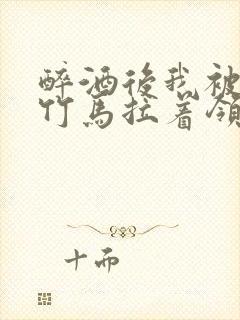 醉酒後我被
竹馬拉着領
十而